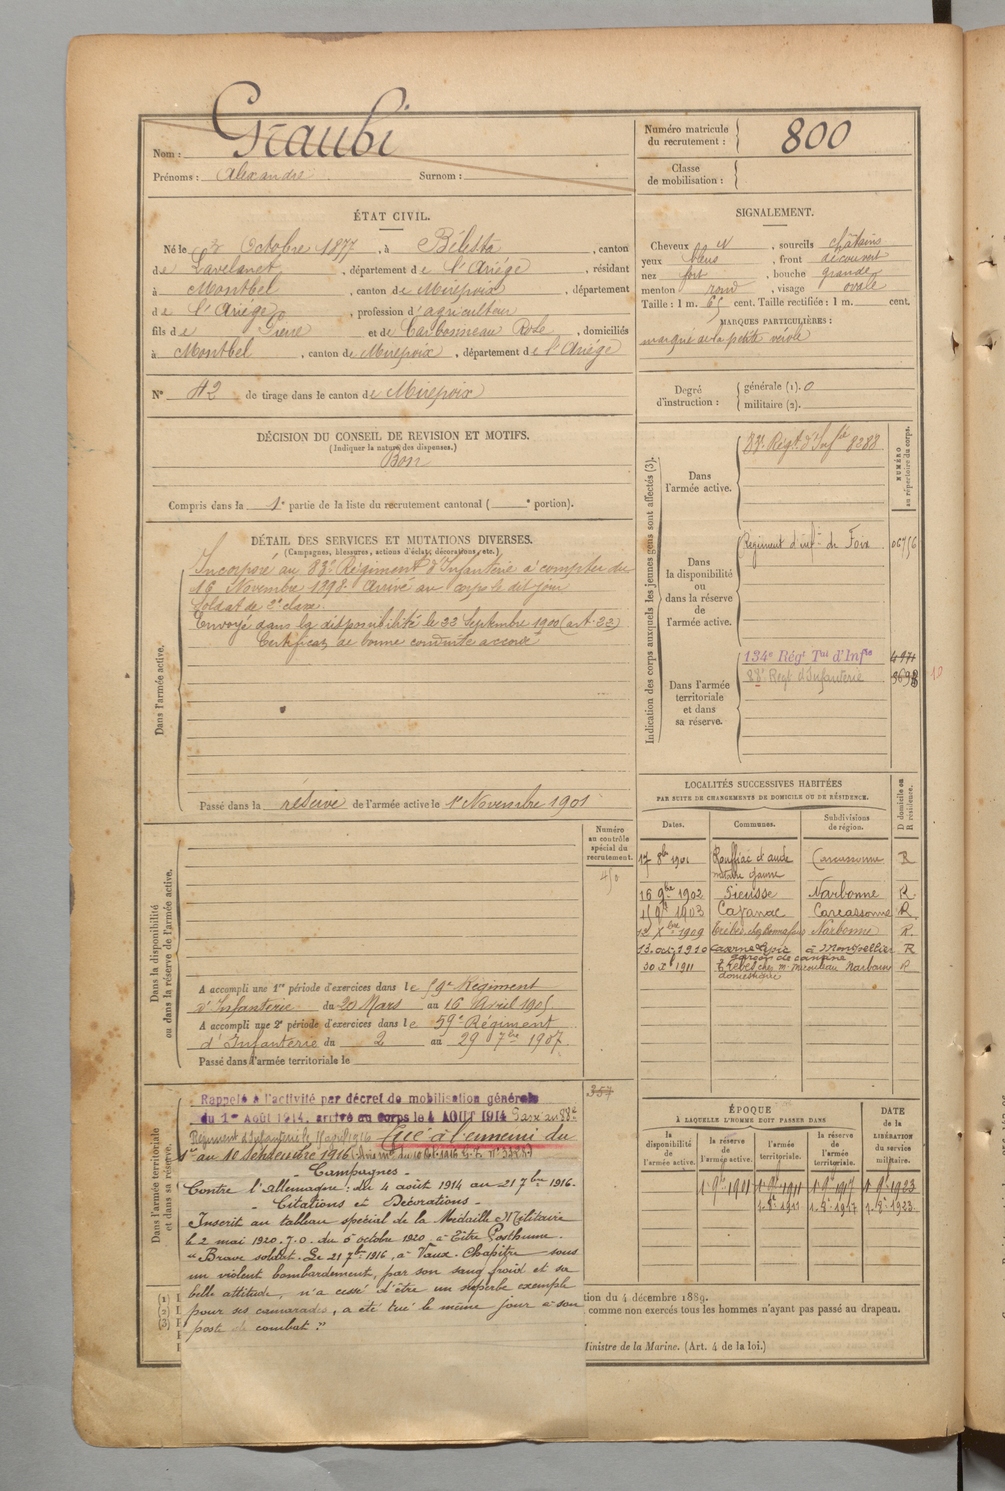 Nom : Graubi
Prénoms : Alexandre Surnom :
Numéro matricule du recrutement : 800
Classe de mobilisation :
ÉTAT CIVIL.
Né le 2 Octobre 1877, à Bélesta, canton
de Lavelanet, département de l'Ariége, résidant
à Montbel, canton de Mirepoix, département
de l'Ariége, profession d'agriculteur
fils de Pierre et de Carbonneau Rose, domiciliés
à Montbel, canton de Mirepoix, département de l'Ariége
N° 42 de tirage dans le canton de Mirepoix
SIGNALEMENT.
Cheveux N, sourcils châtains
yeux bleus, front découvert
nez fort, bouche grande
menton rond, visage ovale
Taille : 1 m. 65 cent. Taille rectifiée : 1 m. cent.
MARQUES PARTICULIÈRES :
marqué de la petite vérole
Degré d'instruction : générale (1). 0
militaire (2).
DÉCISION DU CONSEIL DE REVISION ET MOTIFS.
(Indiquer la nature des dispenses.)
Bon
Compris dans la 1e partie de la liste du recrutement cantonal ( e portion).
DÉTAIL DES SERVICES ET MUTATIONS DIVERSES.
(Campagnes, blessures, actions d'éclat, décorations, etc.)
Dans l'armée active.
Incorporé au 83e Régiment d'Infanterie à compter du
16 Novembre 1898. Arrivé au corps le dit jour
Soldat de 2e classe.
Envoyé dans la disponibilité le 22 Septembre 1900 (art. 22)
Certificat de bonne conduite accordé
Passé dans la réserve de l'armée active le 1er Novembre 1901
Indication des corps auxquels les jeunes gens sont affectés (3).
NUMÉRO au répertoire du corps.
Dans l'armée active.
83e Régt d'Infie 8288
Dans la disponibilité ou dans la réserve de l'armée active.
Régiment d'infie de Foix
Dans l'armée territoriale et dans sa réserve.
134e Régt Tal d'Infie
88e Regt d'Infanterie
LOCALITÉS SUCCESSIVES HABITÉES
PAR SUITE DE CHANGEMENTS DE DOMICILE OU DE RÉSIDENCE.
Dates. Communes. Subdivisions de région. D domicile ou R résidence.
17 8bre 1901 Rouffiac d'aude Carcassonne R
16 9bre 1902 Sieusse Narbonne R.
1903 Cazanac Carcassonne R
12 Xbre 1909 Trèbes Narbonne R.
13 oct 1910 caserne à Montpellier R
garçon de cantine
30 Xe 1911 Trèbes chez M. Narbonne R
domestique
Dans la disponibilité ou dans la réserve de l'armée active.
Numéro au contrôle spécial du recrutement.
A accompli une 1re période d'exercices dans le 59e Régiment
d'Infanterie du 20 Mars au 16 Avril 1905
A accompli une 2e période d'exercices dans le 59e Régiment
d'Infanterie du 2 au 29 7bre 1907.
Passé dans l'armée territoriale le
Dans l'armée territoriale et dans sa réserve.
357
Rappelé à l'activité par décret de mobilisation générale
du 1er Août 1914, arrivé au corps le 4 AOUT 1914 Passé au 88e
Régiment d'Infanterie le 11 avril 1916 Tué à l'ennemi du
1er au 10 Septembre 1916
- Campagnes -
Contre l'Allemagne : du 4 août 1914 au 21 7bre 1916.
- Citations et Décorations -
Inscrit au tableau spécial de la Médaille Militaire
le 2 mai 1920. J.O. du 6 octobre 1920 à titre Posthume.
" Brave soldat. Le 21 7bre 1916, à Vaux-Chapitre sous
un violent bombardement, par son sang froid et sa
belle attitude, n'a cessé d'être un superbe exemple
pour ses camarades, a été tué le même jour à son
poste de combat. "
ÉPOQUE
À LAQUELLE L'HOMME DOIT PASSER DANS
la disponibilité de l'armée active. la réserve de l'armée active. l'armée territoriale. la réserve de l'armée territoriale.
DATE de la LIBÉRATION du service militaire.
(1)
(2)
(3)
tion du 4 décembre 1889.
comme non exercés tous les hommes n'ayant pas passé au drapeau.
Ministre de la Marine. (Art. 4 de la loi.)